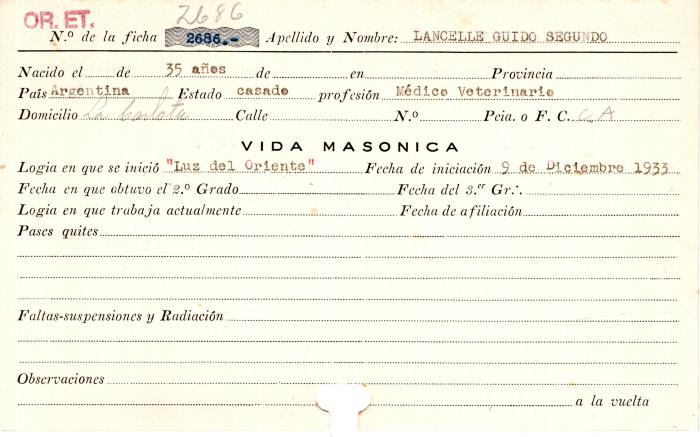 OR. ET.
2686
N.º de la ficha 2686.- Apellido y Nombre: LANCELLE GUIDO SEGUNDO
Nacido el de 35 años de en Provincia
País Argentina Estado casado profesión Médico Veterinario
Domicilio La Carlota Calle N.º Pcia. o F. C. C A
VIDA MASONICA
Logia en que se inició "Luz del Oriente" Fecha de iniciación 9 de Diciembre 1933
Fecha en que obtuvo el 2.º Grado Fecha del 3.er Gr∴
Logia en que trabaja actualmente Fecha de afiliación
Pases quites
Faltas-suspensiones y Radiación
Observaciones
a la vuelta